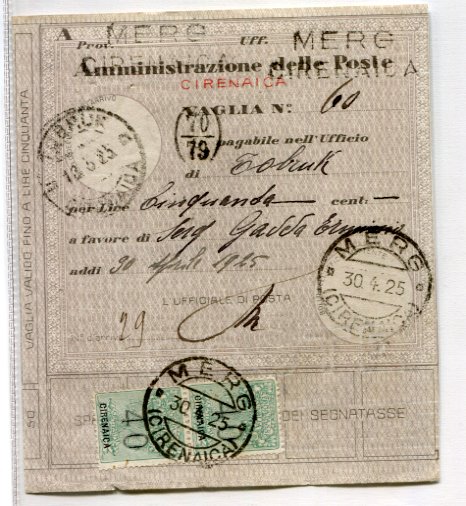 A MERG MERG
Prov. Uff.
CIRENAICA CIRENAICA
Amministrazione delle Poste
CIRENAICA
VAGLIA N° 60
70
79
pagabile nell'Ufficio
di Tobruk
per Lire Cinquanta cent: —
a favore di Serg Gadda
addì 30 Aprile 1925
L'UFFICIALE DI POSTA
29
TOBRUK
CIRENAICA
MERG
30.4.25
(CIRENAICA)
MERG
(CIRENAICA)
40
CIRENAICA
CIRENAICA
DEI SEGNATASSE
VAGLIA VALIDO FINO A LIRE CINQUANTA
50